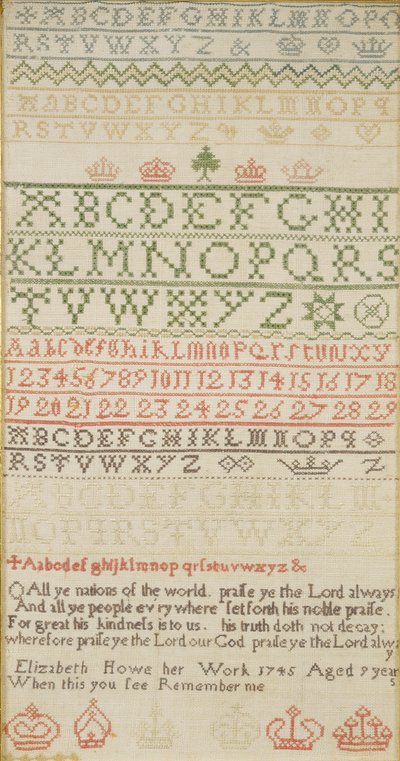 ABCDEFGHIKLMNOPQ
RSTVWXYZ &
ABCDEFGHIKLMNOPq
RSTVWXYZ
ABCDEFGHI
KLMNOPQRS
TVVWXYZ
Aabcdefghiklmnopqrſstuvxy
123456789 10 11 12 13 14 15 16 17 18
19 20 21 22 23 24 25 26 27 28 29
ABCDEFGHIKLMNOPq
RSTVWXYZ Z
ABCDEFGHIKLM
NOPqRSTVWXYZ
Aabcdefghijklmnopqrſstuvwxyz &
O All ye nations of the world. praiſe ye the Lord always
And all ye people ev ry where ſet forth his noble praiſe.
For great his kindneſs is to us. his truth doth not decay;
wherefore praiſe ye the Lord our God praiſe ye the Lord alway
Elizabeth Howe her Work 1745 Aged 9 years
When this you ſee Remember me